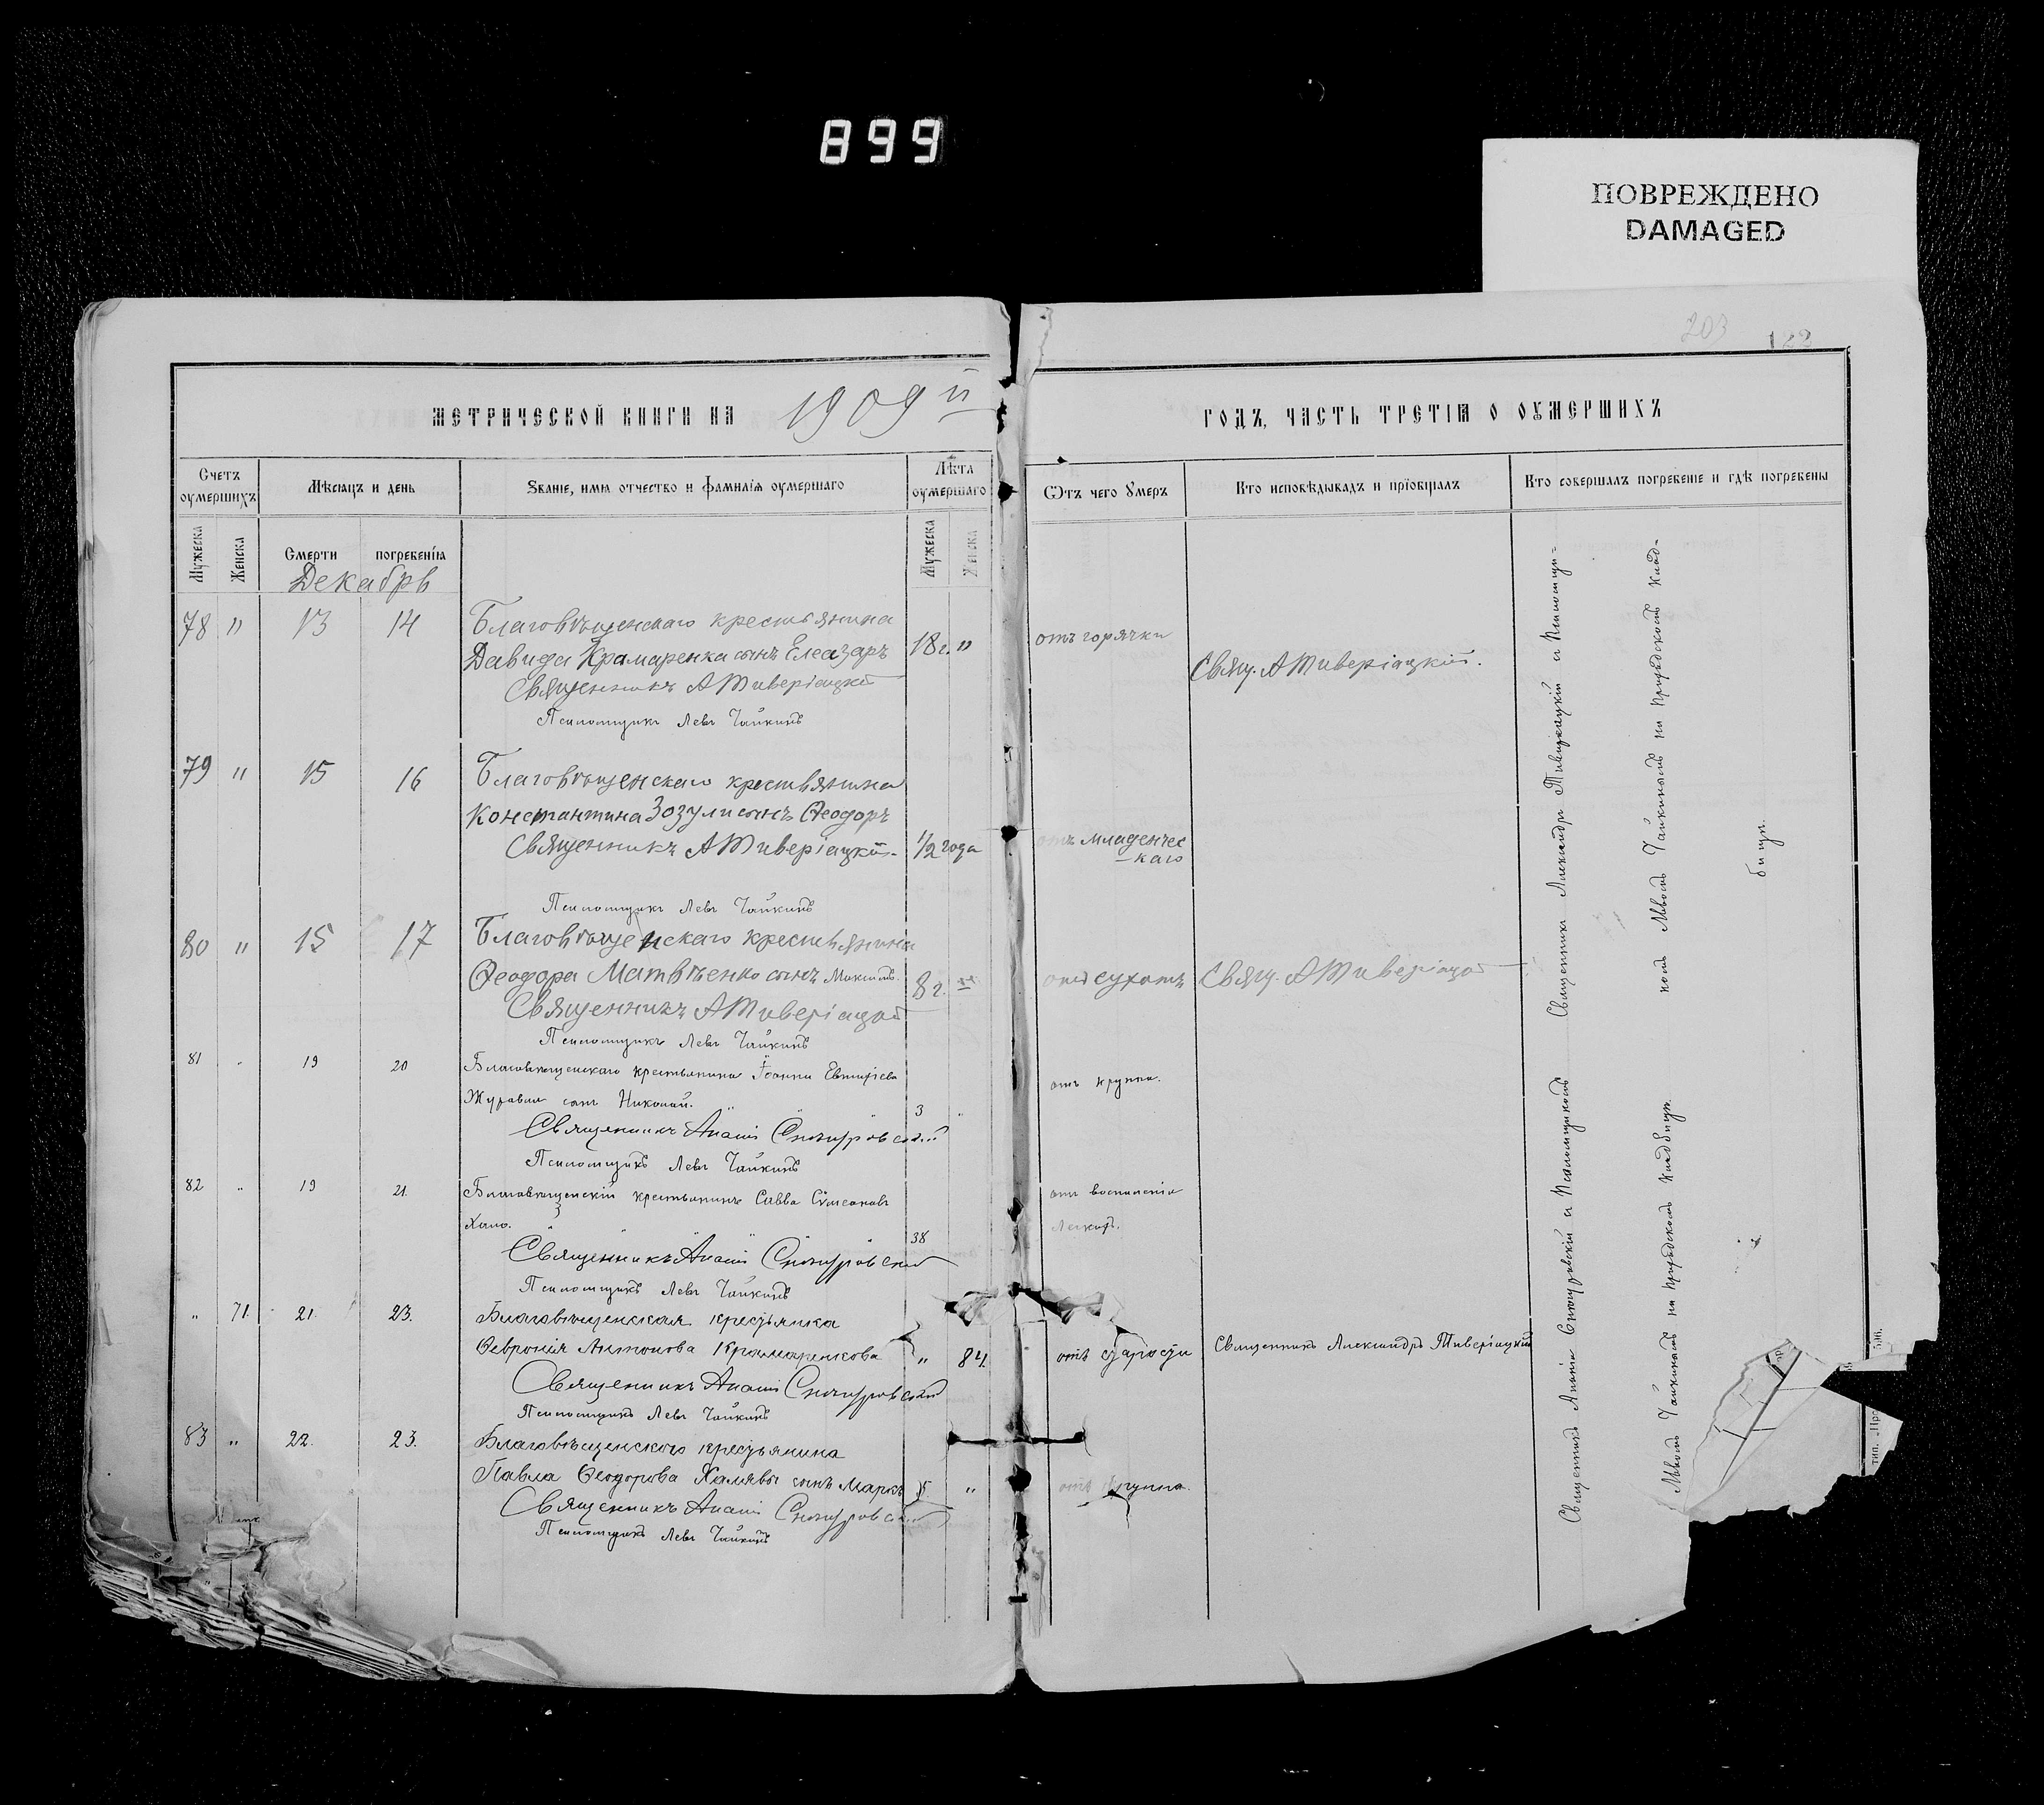 899
ПОВРЕЖДЕНО
DAMAGED
203 122
МЕТРИЧЕСКОЙ КНИГИ НА 1909 й
ГОДЪ, ЧАСТЬ ТРЕТІѦ О ОУМЕРШИХЪ
Счетъ оумершихъ
Мѣсяцъ и день
Званіе, имя отчество и фамилія оумершаго
Лѣта оумершаго
Ѿтъ чего умеръ
Кто исповѣдывалъ и пріобщалъ
Кто совершалъ погребеніе и гдѣ погребены
Мужеска
Женска
Смерти
погребенія
Мужеска
Женска
Декабрь
78 " 13 14 Благовѣщенскаго крестьянина
Давида Крамаренка сынъ Елеазаръ 18 г. " отъ горячки
Священникъ А Тиверіацкій Свящ. А Тиверіацкій.
Псаломщикъ Левъ Чайкинъ
79 " 15 16 Благовѣщенскаго крестьянина
Константина Зозули сынъ Ѳеодоръ
Священникъ А Тиверіацкій 1/2 года отъ младенчес
-каго
Псаломщикъ Левъ Чайкинъ
80 " 15 17 Благовѣщенскаго крестьянина
Ѳеодора Матвѣенко сынъ Максимъ. 8 г. " отъ сухотъ Свящ. А Тиверіацкій
Священникъ А Тиверіацкій
Псаломщикъ Левъ Чайкинъ
81 " 19 20 Благовѣщенскаго крестьянина Іоанна Евтихіева
Журавля сынъ Николай. 3 " отъ крупа.
Священникъ Ананій Снѣгуровскій
Псаломщикъ Левъ Чайкинъ
82 " 19 21. Благовѣщенскій крестьянинъ Савва Сѵмеоновъ
38 отъ воспаленія
легкихъ.
Священникъ Ананій Снѣгуровскій
Псаломщикъ Левъ Чайкинъ
" 71 21. 23. Благовѣщенская крестьянка
Ѳевронія Антонова Крамаренкова " 84. отъ старости Священникъ Александръ Тиверіацкій
Священникъ Ананій Снѣгуровскій
Псаломщикъ Левъ Чайкинъ
83 " 22. 23. Благовѣщенскаго крестьянина
Павла Ѳеодорова Халявы сынъ Маркъ 5. " отъ крупа.
Священникъ Ананій Снѣгуровскій
Псаломщикъ Левъ Чайкинъ
Священникъ Александръ Тиверіацкій и Псаломщи-
комъ Львомъ Чайкинымъ на приходскомъ клад-
бищѣ.
Священникъ Ананій Снѣгуровскій и Псаломщикомъ
Львомъ Чайкинымъ на приходскомъ кладбищѣ.